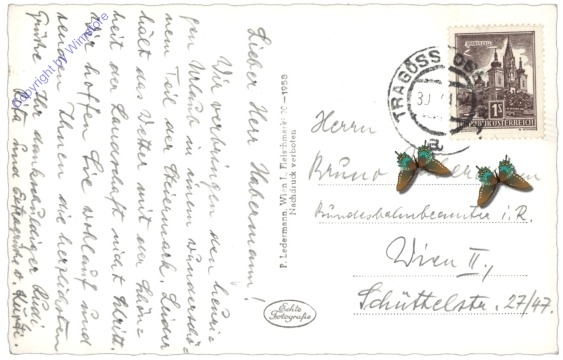 Lieber Herr Habermann!
Wir verbringen den heuri-
gen Urlaub in einem wunderschö-
nen Teil der Steiermark. Leider
hält das Wetter mit der Schön-
heit der Landschaft nicht Schritt.
Wir hoffen Sie wohlauf und
senden Ihnen die herzlichsten
Grüße Ihr dankschuldiger Rudi,
und
P. Ledermann, Wien I., Fleischmarkt 20 - 1958
Nachdruck verboten
Echte
Fotografie
TRAGÖSS
MARIAZELL
1S
REPUBLIK ÖSTERREICH
Herrn
Bruno
Bundesbahnbeamter i. R.
Wien II.,
Schüttelstr. 27/47.
Copyright by Winstore